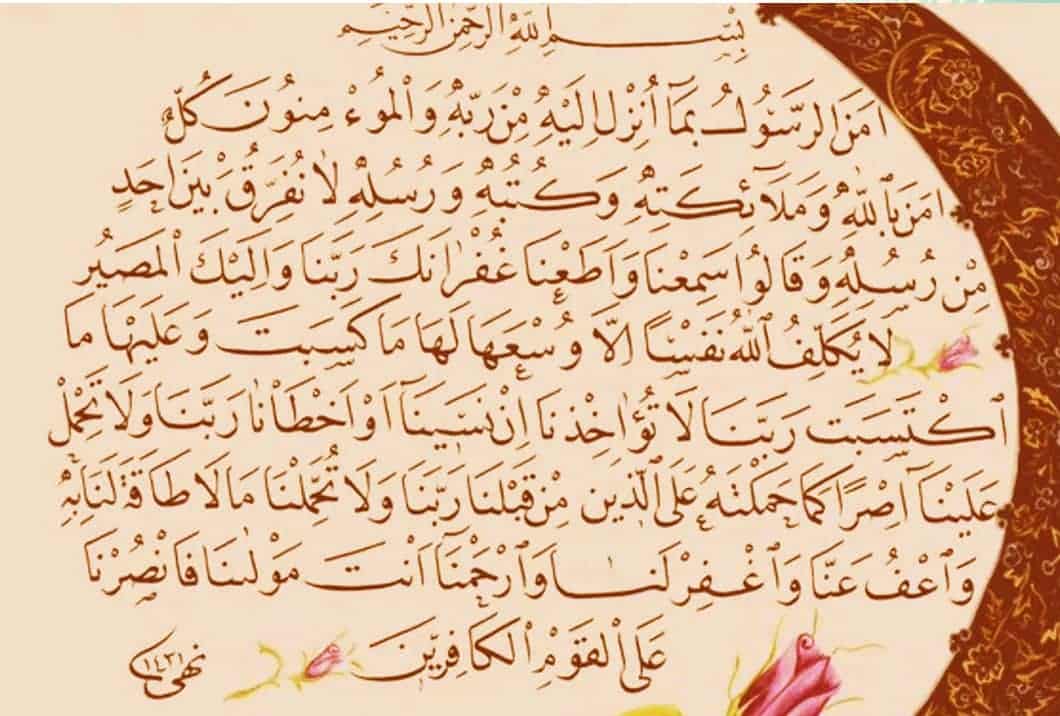 بِسْمِ اللهِ الرَّحْمٰنِ الرَّحِيمِ
اٰمَنَ الرَّسُولُ بِمَآ اُنْزِلَ اِلَيْهِ مِنْ رَبِّهٖ وَالْمُوءْ مِنُونَ كُلٌّ
اٰمَنَ بِاللهِ وَمَلَآئِكَتِهٖ وَكُتُبِهٖ وَرُسُلِهٖ لَا نُفَرِّقُ بَيْنَ اَحَدٍ
مِنْ رُسُلِهٖ وَقَالُوا سَمِعْنَا وَاَطَعْنَا غُفْرَانَكَ رَبَّنَا وَاِلَيْكَ الْمَصِيْرُ
لَا يُكَلِّفُ اللهُ نَفْسًا اِلَّا وُسْعَهَا لَهَا مَا كَسَبَتْ وَعَلَيْهَا مَا
اكْتَسَبَتْ رَبَّنَا لَا تُؤَاخِذْنَا اِنْ نَسِينَآ اَوْ اَخْطَاْنَا رَبَّنَا وَلَا تَحْمِلْ
عَلَيْنَآ اِصْرًا كَمَا حَمَلْتَهُ عَلَى الَّذِينَ مِنْ قَبْلِنَا رَبَّنَا وَلَا تُحَمِّلْنَا مَا لَا طَاقَةَ لَنَا بِهٖ
وَاعْفُ عَنَّا وَاغْفِرْ لَنَا وَارْحَمْنَآ اَنْتَ مَوْلٰىنَا فَانْصُرْنَا
عَلَى الْقَوْمِ الْكَافِرِينَ
نهى ١٤٣١